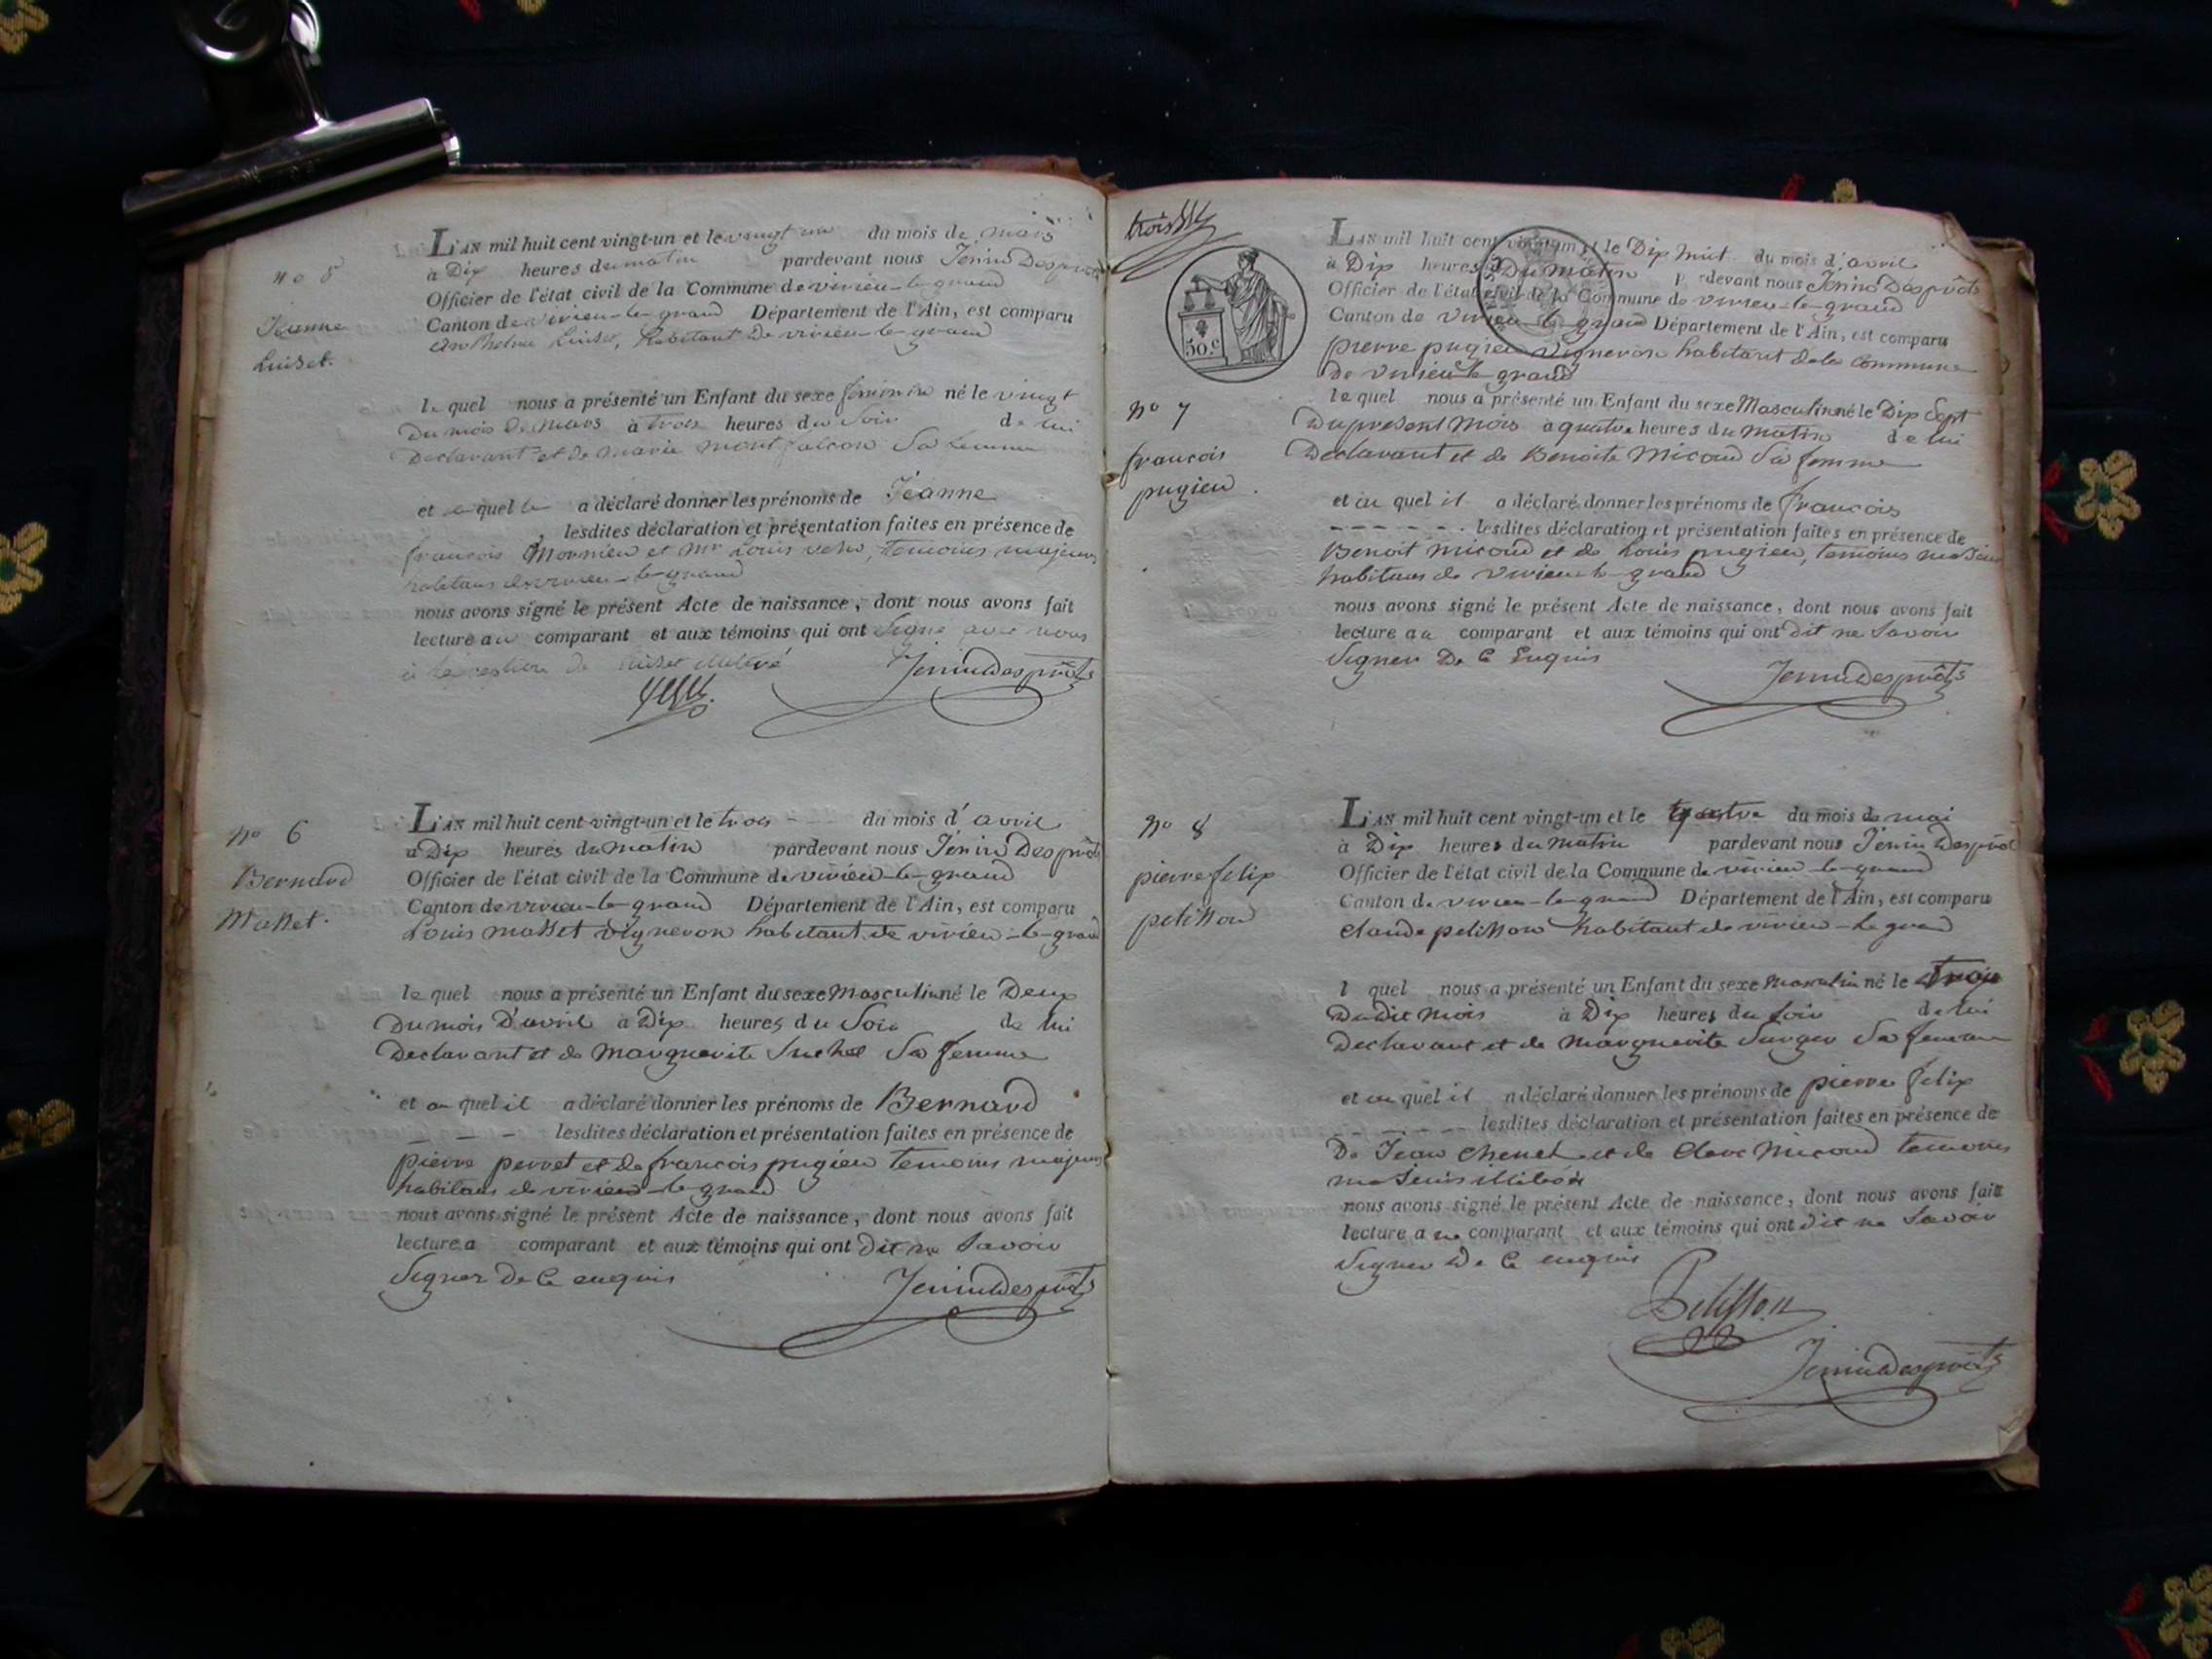 n o 5
Jeanne
Luiset.
L'AN mil huit cent vingt-un et le vingt un du mois de mars
à Dix heures du matin pardevant nous Jenin Desprôts
Officier de l'état civil de la Commune de virieu-le-grand
Canton de virieu-le-grand Département de l'Ain, est comparu
anthelme Luiset, habitant De virieu-le-grand
le quel nous a présenté un Enfant du sexe feminin né le vingt
Du mois De mars à trois heures du Soir de lui
Declarant et de marie montfalcon Sa femme
et a quel le a déclaré donner les prénoms de Jéanne
lesdites déclaration et présentation faites en présence de
françois Monnieu et Mr Louis temoins majeurs
habitans de virieu-le-grand
nous avons signé le présent Acte de naissance, dont nous avons fait
lecture au comparant et aux témoins qui ont Signé avec nous
à la reserve de Luiset illiteré
Jenin Desprôts
No 6
Bernard
Masset.
L'AN mil huit cent vingt-un et le trois du mois d'avril
à Dix heures du matin pardevant nous Jénin Desprôts
Officier de l'état civil de la Commune de virieu-le-grand
Canton de virieu-le-grand Département de l'Ain, est comparu
Louis masset vigneron habitant de virieu-le-grand
le quel nous a présenté un Enfant du sexe Masculin né le Deux
Du mois D'avril à Dix heures du Soir de lui
Declarant et de Marguerite Suchet Sa femme
et au quel il a déclaré donner les prénoms de Bernard
lesdites déclaration et présentation faites en présence de
pierre perret et de françois pugieu temoins majeurs
habitans de virieu-le-grand
nous avons signé le présent Acte de naissance, dont nous avons fait
lecture a comparant et aux témoins qui ont Dit ne Savoir
Signer De ce enquis
Jenin Desprôts
trois
50.c
No 7
francois
pugieu.
L'AN mil huit cent vingt-un et le Dix huit du mois d'avril
à Dix heures Du matin pardevant nous Jenin Desprôts
Officier de l'état civil de la Commune de virieu-le-grand
Canton de virieu-le-grand Département de l'Ain, est comparu
pierre pugieu vigneron habitant de la commune
De virieu le grand
le quel nous a présenté un Enfant du sexe Masculin né le Dix Sept
Du present Mois à quatre heures du matin de lui
Declarant et de Benoite Micoud Sa femme
et au quel il a déclaré donner les prénoms de francois
lesdites déclaration et présentation faites en présence de
Benoit micoud et de Louis pugieu, temoins majeurs
habitans de virieu-le-grand
nous avons signé le présent Acte de naissance, dont nous avons fait
lecture au comparant et aux témoins qui ont Dit ne Savoir
Signer De Ce Enquis
Jenin Desprôts
No 8
pierre felix
pelisson
L'AN mil huit cent vingt-un et le quatre du mois de mai
à Dix heures du matin pardevant nous Jenin Desprôts
Officier de l'état civil de la Commune de virieu-le-grand
Canton de virieu-le-grand Département de l'Ain, est comparu
claude pelisson habitant de virieu-le grand
l quel nous a présenté un Enfant du sexe Masculin né le trois
Du Dit Mois à Dix heures du Soir de lui
Declarant et de Marguerite Surger Sa femme
et au quel il a déclaré donner les prénoms de pierre felix
lesdites déclaration et présentation faites en présence de
De Jean Chenet et de Clere Micoud temoins
majeurs illiterés
nous avons signé le présent Acte de naissance, dont nous avons fait
lecture a comparant et aux témoins qui ont Dit ne Savoir
Signer De Ce enquis
Pelisson
Jenin Desprôts